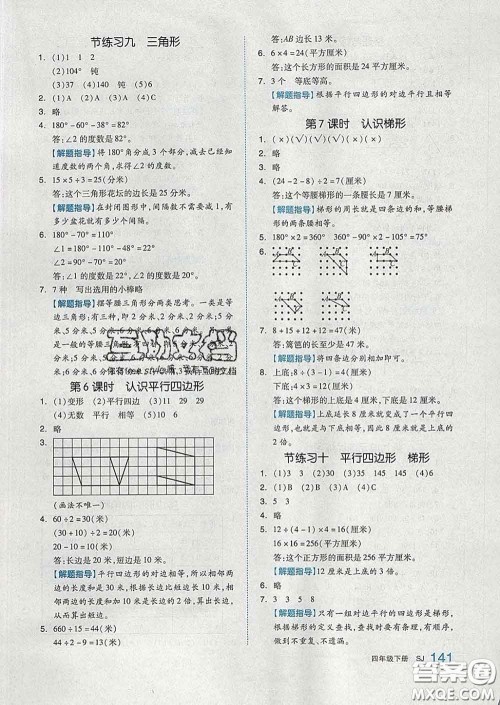 节练习九 三角形
1. (1)1 1 2
(2)104° 钝
(3)37 (4)140 (5)60
2. (1)A (2)A (3)C (4)A
3. 略
4. 180°-60°-38°=82°
答:∠2的度数是82°。
【解题指导】将180°角分成3个部分,减去已
知的两个角,求得∠2的度数。
5. 15×5÷3=25(分米)
答:这个三角形花坛的边长是25分米。
【解题指导】在封闭图形中,间隔数不需要减1,有
多少盆花就有多少间隔。
6. 180°-70°=110°
∠1=180°-110°=70°
∠2=180°-90°-70°=20°
答:∠1的度数是70°,∠2的度数是20°。
7. 7种 写出选用的小棒略
【解题指导】摆等腰三角形分两类思考。一类是等
第6课时 认识平行四边形
1. (1)变形 (2)平行四边 (3)11 29 29
(4)无数 平行 相等 (5)6
2. 略
3.
(画法不唯一)
4. 60÷2=30(米)
(30-10)÷2=10(米)
20-10=10(米)
答:长边是20米,短边是10米。
【解题指导】平行四边形的对边相等,所以相邻两
边的长度和是30米,根据相邻两边的长度和是
30米和长边的长度是短边长度的2倍,算出长边,
从而算出短边。
5. 660÷15=44(米)
44÷2-9=13(米)
答:AB边长13米。
6. 6×4=24(平方厘米)
答:这个长方形的面积是24平方厘米。
7. 3个 等底等高。
【解题指导】根据平行四边形的对边平行且相等
解答。
第7课时 认识梯形
1. (×)(√)(√)(×)(√)(×)
2. 略
3. (24-2-8)÷2=7(厘米)
答:这个等腰梯形的一条腰长是7厘米。
【解题指导】梯形的周长就是四条边的和,等腰梯
形的两条腰相等。
4. 180°×2=360° 360°-90°×2-105°=75°
5. ①②③④
6.
7. 8+15+12+12=47(米)
答:篱笆的长至少是47米。
【解题指导】将四条边的长度相加即可。
8. 上底:8÷(3-1)=4(厘米)
下底:4+8=12(厘米)
答:上底长4厘米,下底长12厘米。
【解题指导】上底延长8厘米就变成了一个平行
四边形,说明上底比下底短8厘米。
节练习十 平行四边形 梯形
1. (1)3 3 (2)30 (3)35 145 (4)6
2. (1)B (2)C (3)C (4)B
3. 5 5 3
4. 略
5. 12÷(4-1)×4=16(厘米)
16×16=256(平方厘米)
答:这个正方形的面积是256平方厘米。
【解题指导】12厘米是上底的3倍。
6. 1 3 5 3 5 8
【解题指导】只有一组对边平行的四边形是梯形,
根据梯形的定义,有顺序地找,做到不重复、不
遗漏。
四年级下册 SJ 141
答案圈
MXQE.COM